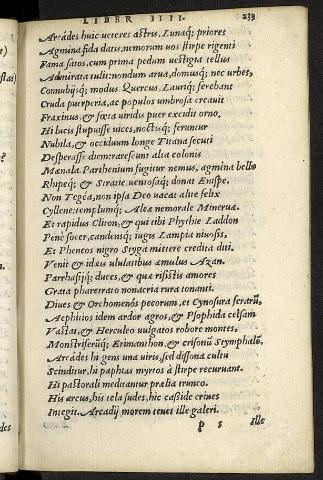 LIBER IIII. 233
Arcades huic veteres astris, Lunaq; priores
Agmina fida datis, nemorum vos stirpe rigenti
Fama satos, cum prima pedum vestigia tellus
Admirata tulit: nondum arva, domusq; nec urbes,
Connubijq; modus. Quercus, Lauriq; ferebant
Cruda puerperia, ac populos umbrosa creavit
Fraxinus, & fœta viridis puer excidit orno.
Hi lucis stupuisse vices, noctisq; feruntur
Nubila, & occiduum longe Titana secuti
Desperasse diem: rarescunt alta colonis
Mænala. Parthenium fugitur nemus, agmina bello
Rhipeq; & Stratie, ventosaq; donat Enispe.
Non Tegea, non ipsa Deo vacat alite felix
Cyllene: templumq; Aleæ nemorale Minervæ.
Et rapidus Cliton, & qui tibi Phythie Laddon
Penè socer, candensq; iugis Lampia nivosis,
Et Pheneos nigro Styga mittere credita diti.
Venit & idæis ululatibus æmulus Azan.
Parrhasijq; duces, & quæ risistis amores
Grata pharetrato nonacria rura tonanti.
Dives & Orchomenos pecorum, et Cynosura ferarũ,
Aepitios idem ardor agros, & Psophida celsam
Vastat, & Herculeo vulgatos robore montes.
Monstriferũq; Erimanthon, & ærisonũ Stymphalũ.
Arcades hi gens una viris, sed dissona cultu
Scinditur, hi paphias myrtos à stirpe recurvant.
Hi pastorali meditantur prælia trunco.
His arcus, his tela sudes, hic casside crines
Integit. Arcadij morem tenet ille galeri.
p 5 ille